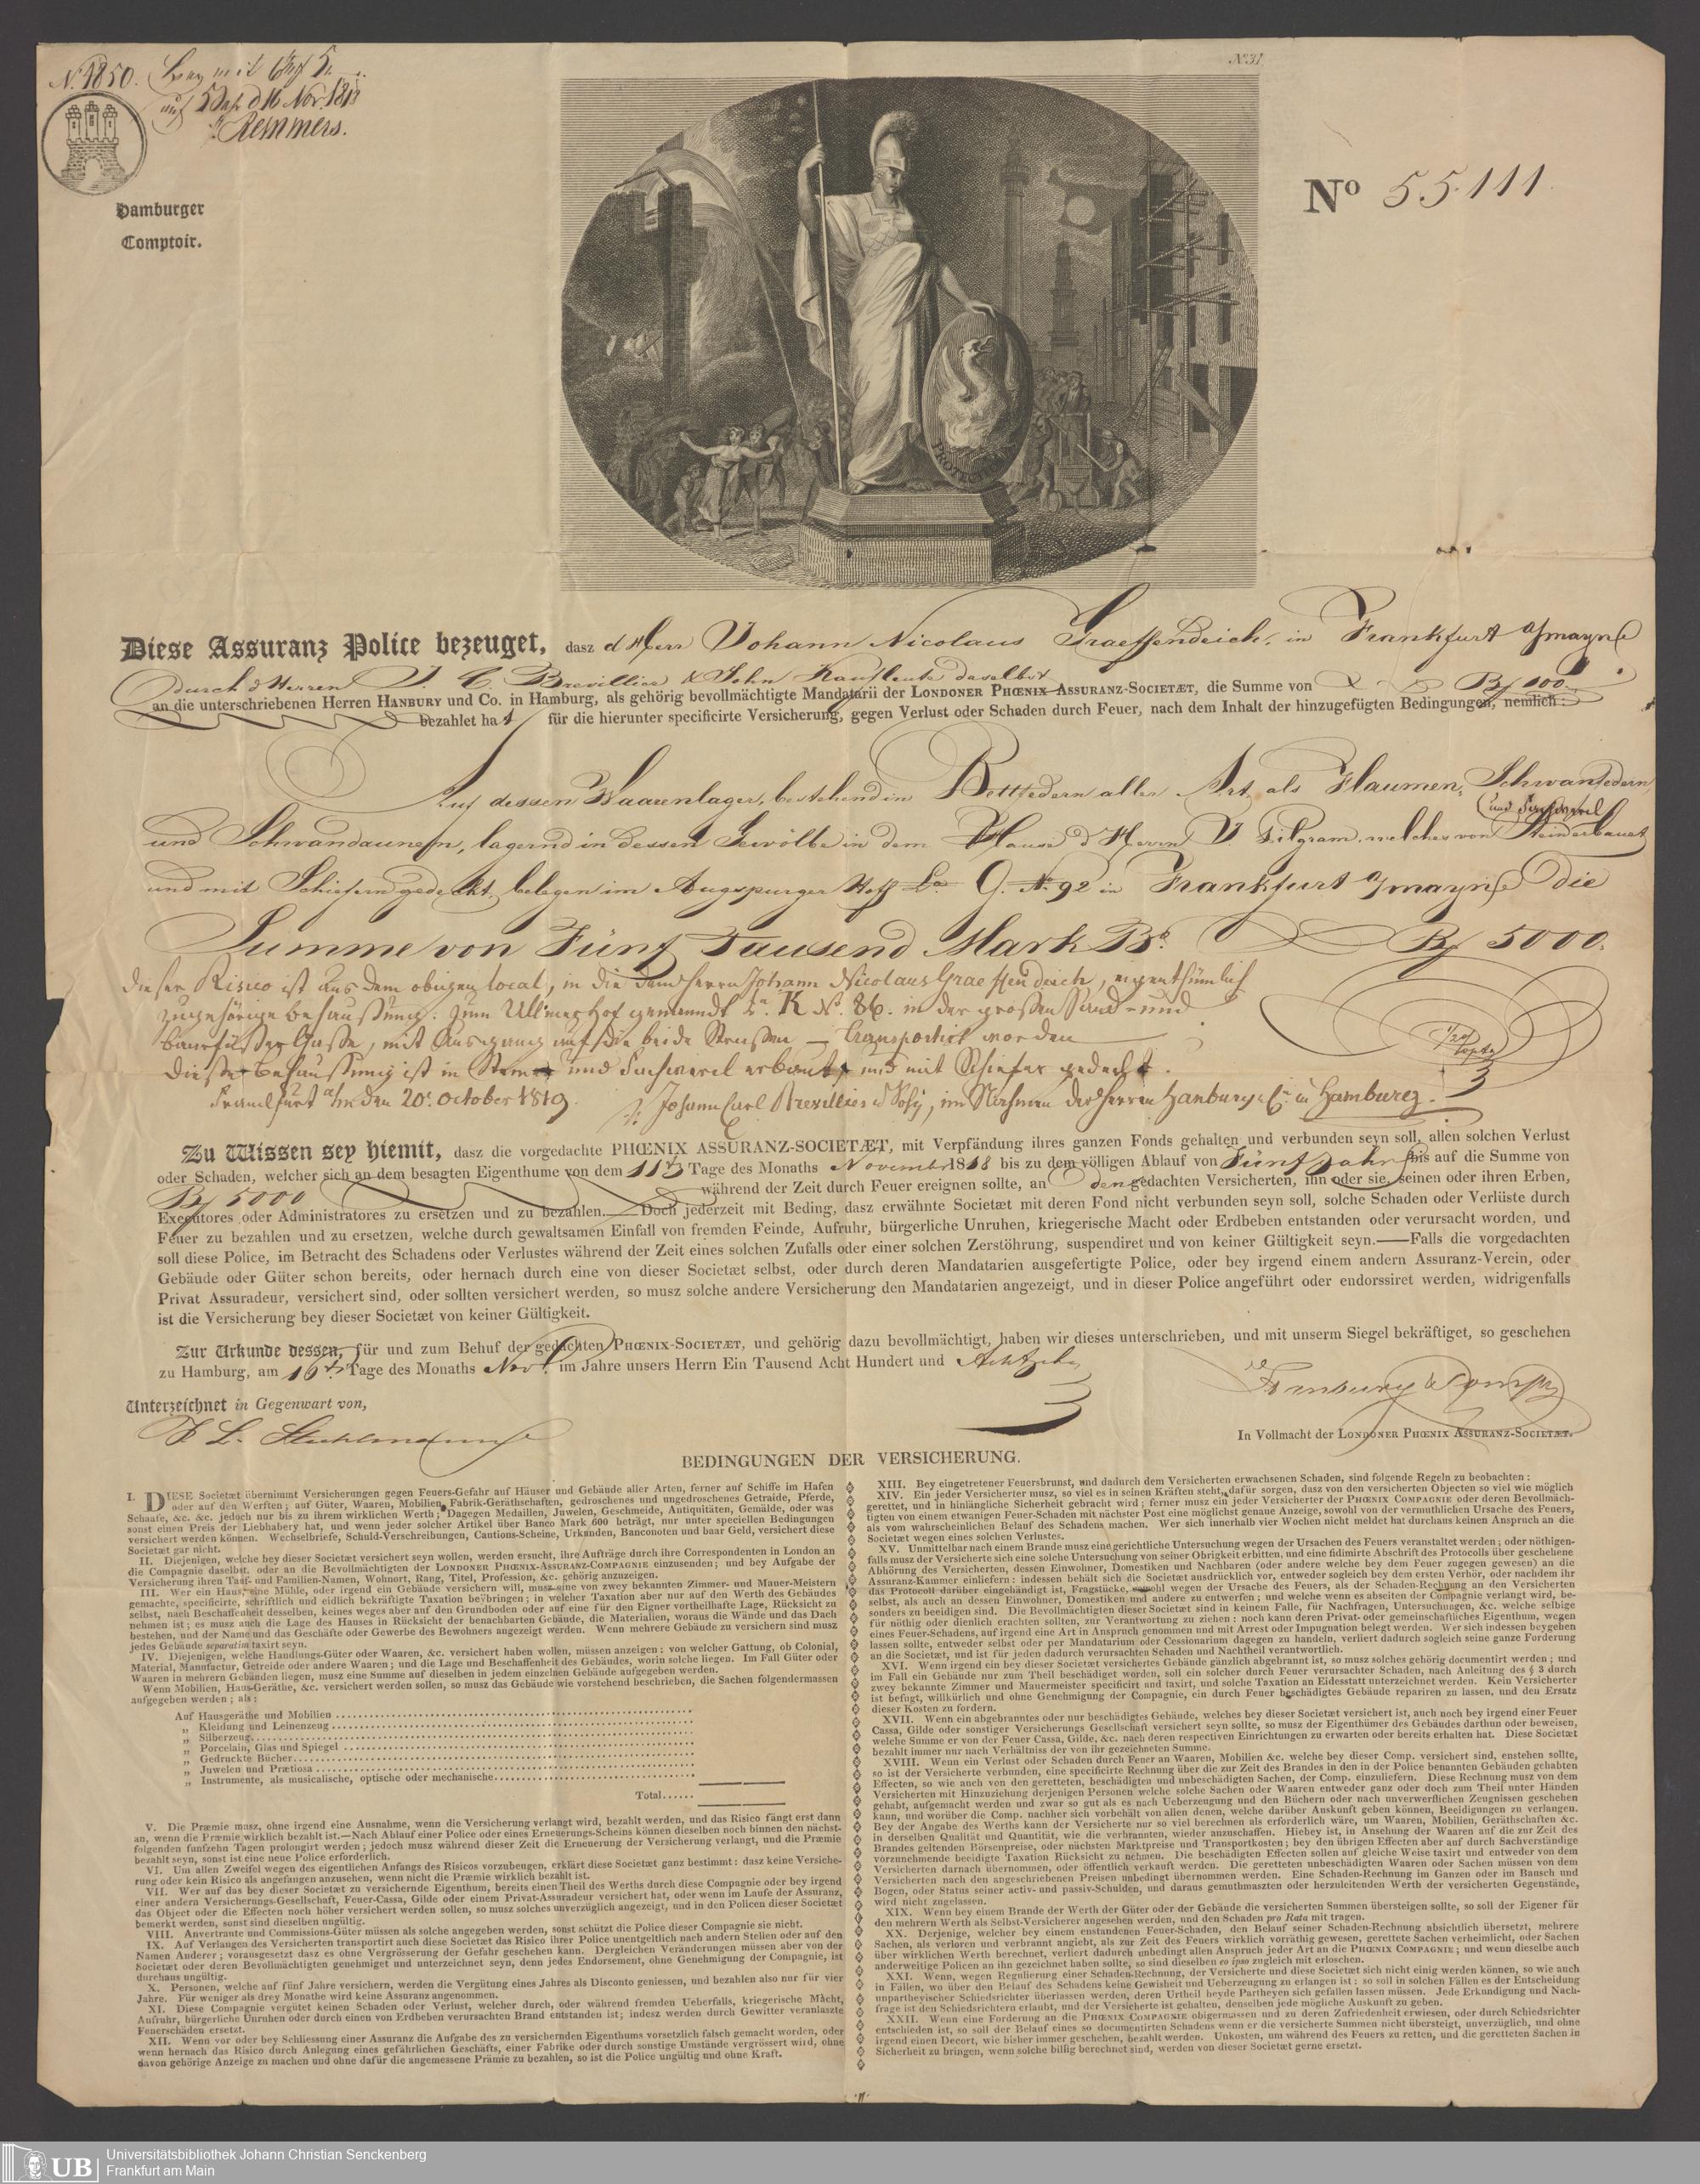 N. 1850.
auf 5 Jahr d 16 Nov. 1818
Remmers.
Hamburger
Comptoir.
N.31
No 55.111
PROTECTION
Diese Assuranz Police bezeuget, dasz d Herr Johann Nicolaus Graeffendeich, in Frankfurt a/mayn
durch d Herren J. C. Brevillier & Sohn Kaufleute daselbst
an die unterschriebenen Herren HANBURY und Co. in Hamburg, als gehörig bevollmächtigte Mandatarii der LONDONER PHŒNIX-ASSURANZ-SOCIETÆT, die Summe von 100
bezahlet hat für die hierunter specificirte Versicherung, gegen Verlust oder Schaden durch Feuer, nach dem Inhalt der hinzugefügten Bedingungen, nemlich:
Auf dessen Waarenlager, bestehend in Bettfedern aller Art, als Flaumen, Schwanfedern,
und Fachwerk
und Schwandaunen, lagernd in dessen Gewölbe in dem Hause d Herrn J Pilgram, welches von Stein erbauet
und mit Schiefern gedeckt, belegen im Augspurger Hoff La. G. N. 92 in Frankfurt a/mayn die
Summe von Fünf Tausend Mark Bo. 5000.
dieser Risico ist aus dem obigen local, in die dem Herrn Johann Nicolaus Graeffendeich, eigenthümlich
zugehörige Behaussung, zum Ullmer Hof genanndt La. K No. 86. in der grossen Sand- und
Baarfüsser Gasse, mit Ausgang auf die beide Strassen — transportirt worden
diesse Behaussung ist in Stein und Fachwerck erbaut, und mit Schiefer gedeckt.
Franckfurt a/m den 20. October 1819. Johann Carl Brevillier & Sohn, im Nahmen der Herren Hanbury & C. in Hamburg.
Zu Wissen sey hiemit, dasz die vorgedachte PHŒNIX ASSURANZ-SOCIETÆT, mit Verpfändung ihres ganzen Fonds gehalten und verbunden seyn soll, allen solchen Verlust
oder Schaden, welcher sich an dem besagten Eigenthume von dem 11 Tage des Monaths November 1818 bis zu dem völligen Ablauf von Fünf Jahr bis auf die Summe von
5000 während der Zeit durch Feuer ereignen sollte, an den gedachten Versicherten, ihn oder sie, seinen oder ihren Erben,
Executores oder Administratores zu ersetzen und zu bezahlen.——Doch jederzeit mit Beding, dasz erwähnte Societæt mit deren Fond nicht verbunden seyn soll, solche Schaden oder Verlüste durch
Feuer zu bezahlen und zu ersetzen, welche durch gewaltsamen Einfall von fremden Feinde, Aufruhr, bürgerliche Unruhen, kriegerische Macht oder Erdbeben entstanden oder verursacht worden, und
soll diese Police, im Betracht des Schadens oder Verlustes während der Zeit eines solchen Zufalls oder einer solchen Zerstöhrung, suspendiret und von keiner Gültigkeit seyn.——Falls die vorgedachten
Gebäude oder Güter schon bereits, oder hernach durch eine von dieser Societæt selbst, oder durch deren Mandatarien ausgefertigte Police, oder bey irgend einem andern Assuranz-Verein, oder
Privat Assuradeur, versichert sind, oder sollten versichert werden, so musz solche andere Versicherung den Mandatarien angezeigt, und in dieser Police angeführt oder endorssiret werden, widrigenfalls
ist die Versicherung bey dieser Societæt von keiner Gültigkeit.
Zur Urkunde dessen, für und zum Behuf der gedachten PHŒNIX-SOCIETÆT, und gehörig dazu bevollmächtigt, haben wir dieses unterschrieben, und mit unserm Siegel bekräftiget, so geschehen
zu Hamburg, am 16 Tage des Monaths Novr. im Jahre unsers Herrn Ein Tausend Acht Hundert und Achtzehn
Unterzeichnet in Gegenwart von,
Hanbury & Comp
In Vollmacht der LONDONER PHŒNIX ASSURANZ-SOCIETÆT.
BEDINGUNGEN DER VERSICHERUNG.
I. DIESE Societæt übernimmt Versicherungen gegen Feuers-Gefahr auf Häuser und Gebäude aller Arten, ferner auf Schiffe im Hafen
oder auf den Werften; auf Güter, Waaren, Mobilien, Fabrik-Geräthschaften, gedroschenes und ungedroschenes Getraide, Pferde,
Schaafe, &c. &c. jedoch nur bis zu ihrem wirklichen Werth; Dagegen Medaillen, Juwelen, Geschmeide, Antiquitäten, Gemälde, oder was
sonst einen Preis der Liebhaberey hat, und wenn jeder solcher Artikel über Banco Mark 600 beträgt, nur unter speciellen Bedingungen
versichert werden können. Wechselbriefe, Schuld-Verschreibungen, Cautions-Scheine, Urkunden, Banconoten und baar Geld, versichert diese
Societæt gar nicht.
II. Diejenigen, welche bey dieser Societæt versichert seyn wollen, werden ersucht, ihre Aufträge durch ihre Correspondenten in London an
die Compagnie daselbst, oder an die Bevollmächtigten der LONDONER PHŒNIX-ASSURANZ-COMPAGNIE einzusenden; und bey Aufgabe der
Versicherung ihren Tauf- und Familien-Namen, Wohnort, Rang, Titel, Profession, &c. gehörig anzuzeigen.
III. Wer ein Haus, eine Mühle, oder irgend ein Gebäude versichern will, musz eine von zwey bekannten Zimmer- und Mauer-Meistern
gemachte, specificirte, schriftlich und eidlich bekräftigte Taxation beybringen; in welcher Taxation aber nur auf den Werth des Gebäudes
selbst, nach Beschaffenheit desselben, keines weges aber auf den Grundboden oder auf eine für den Eigner vortheilhafte Lage, Rücksicht zu
nehmen ist; es musz auch die Lage des Hauses in Rücksicht der benachbarten Gebäude, die Materialien, woraus die Wände und das Dach
bestehen, und der Name und das Geschäfte oder Gewerbe des Bewohners angezeigt werden. Wenn mehrere Gebäude zu versichern sind musz
jedes Gebäude separatim taxirt seyn.
IV. Diejenigen, welche Handlungs-Güter oder Waaren, &c. versichert haben wollen, müssen anzeigen: von welcher Gattung, ob Colonial,
Material, Manufactur, Getreide oder andere Waaren; und die Lage und Beschaffenheit des Gebäudes, worin solche liegen. Im Fall Güter oder
Waaren in mehrern Gebäuden liegen, musz eine Summe auf dieselben in jedem einzelnen Gebäude aufgegeben werden.
Wenn Mobilien, Haus-Geräthe, &c. versichert werden sollen, so musz das Gebäude wie vorstehend beschrieben, die Sachen folgendermassen
aufgegeben werden; als:
Auf Hausgeräthe und Mobilien
„ Kleidung und Leinenzeug
„ Silberzeug
„ Porcelain, Glas und Spiegel
„ Gedruckte Bücher
„ Juwelen und Prætiosa
„ Instrumente, als musicalische, optische oder mechanische
Total......
V. Die Præmie musz, ohne irgend eine Ausnahme, wenn die Versicherung verlangt wird, bezahlt werden, und das Risico fängt erst dann
an, wenn die Præmie wirklich bezahlt ist.—Nach Ablauf einer Police oder eines Erneuerungs-Scheins können dieselben noch binnen den nächst-
folgenden funfzehn Tagen prolongirt werden; jedoch musz während dieser Zeit die Erneuerung der Versicherung verlangt, und die Præmie
bezahlt seyn, sonst ist eine neue Police erforderlich.
VI. Um allen Zweifel wegen des eigentlichen Anfangs des Risicos vorzubeugen, erklärt diese Societæt ganz bestimmt: dasz keine Versiche-
rung oder kein Risico als angefangen anzusehen, wenn nicht die Præmie wirklich bezahlt ist.
VII. Wer auf das bey dieser Societæt zu versichernde Eigenthum, bereits einen Theil des Werths durch diese Compagnie oder bey irgend
einer andern Versicherungs-Gesellschaft, Feuer-Cassa, Gilde oder einem Privat-Assuradeur versichert hat, oder wenn im Laufe der Assuranz,
das Object oder die Effecten noch höher versichert werden sollen, so musz solches unverzüglich angezeigt, und in den Policen dieser Societæt
bemerkt werden, sonst sind dieselben ungültig.
VIII. Anvertraute und Commissions-Güter müssen als solche angegeben werden, sonst schützt die Police dieser Compagnie sie nicht.
IX. Auf Verlangen des Versicherten transportirt auch diese Societæt das Risico ihrer Police unentgeltlich nach andern Stellen oder auf den
Namen Anderer; vorausgesetzt dasz es ohne Vergrösserung der Gefahr geschehen kann. Dergleichen Veränderungen müssen aber von der
Societæt oder deren Bevollmächtigten genehmiget und unterzeichnet seyn, denn jedes Endorsement, ohne Genehmigung der Compagnie, ist
durchaus ungültig.
X. Personen, welche auf fünf Jahre versichern, werden die Vergütung eines Jahres als Disconto geniessen, und bezahlen also nur für vier
Jahre. Für weniger als drey Monathe wird keine Assuranz angenommen.
XI. Diese Compagnie vergütet keinen Schaden oder Verlust, welcher durch, oder während fremden Ueberfalls, kriegerische Macht,
Aufruhr, bürgerliche Unruhen oder durch einen von Erdbeben verursachten Brand entstanden ist; indesz werden durch Gewitter veranlaszte
Feuerschäden ersetzt.
XII. Wenn vor oder bey Schliessung einer Assuranz die Aufgabe des zu versichernden Eigenthums vorsetzlich falsch gemacht worden, oder
wenn hernach das Risico durch Anlegung eines gefährlichen Geschäfts, einer Fabrike oder durch sonstige Umstände vergrössert wird, ohne
davon gehörige Anzeige zu machen und ohne dafür die angemessene Prämie zu bezahlen, so ist die Police ungültig und ohne Kraft.
XIII. Bey eingetretener Feuersbrunst, und dadurch dem Versicherten erwachsenen Schaden, sind folgende Regeln zu beobachten:
XIV. Ein jeder Versicherter musz, so viel es in seinen Kräften steht, dafür sorgen, dasz von den versicherten Objecten so viel wie möglich
gerettet, und in hinlängliche Sicherheit gebracht wird; ferner musz ein jeder Versicherter der PHŒNIX COMPAGNIE oder deren Bevollmäch-
tigten von einem etwanigen Feuer-Schaden mit nächster Post eine möglichst genaue Anzeige, sowohl von der vermuthlichen Ursache des Feuers,
als vom wahrscheinlichen Belauf des Schadens machen. Wer sich innerhalb vier Wochen nicht meldet hat durchaus keinen Anspruch an die
Societæt wegen eines solchen Verlustes.
XV. Unmittelbar nach einem Brande musz eine gerichtliche Untersuchung wegen der Ursachen des Feuers veranstaltet werden; oder nöthigen-
falls musz der Versicherte sich eine solche Untersuchung von seiner Obrigkeit erbitten, und eine fidimirte Abschrift des Protocolls über geschehene
Abhörung des Versicherten, dessen Einwohner, Domestiken und Nachbaren (oder andere welche bey dem Feuer zugegen gewesen) an die
Assuranz-Kammer einliefern: indessen behält sich die Societæt ausdrücklich vor, entweder sogleich bey dem ersten Verhör, oder nachdem ihr
das Protocoll darüber eingehändigt ist, Fragstücke, sowohl wegen der Ursache des Feuers, als der Schaden-Rechnung an den Versicherten
selbst, als auch an dessen Einwohner, Domestiken und andere zu entwerfen; und welche wenn es abseiten der Compagnie verlangt wird, be-
sonders zu beeidigen sind. Die Bevollmächtigten dieser Societæt sind in keinem Falle, für Nachfragen, Untersuchungen, &c. welche selbige
für nöthig oder dienlich erachten sollten, zur Verantwortung zu ziehen: noch kann deren Privat- oder gemeinschaftliches Eigenthum, wegen
eines Feuer-Schadens, auf irgend eine Art in Anspruch genommen und mit Arrest oder Impugnation belegt werden. Wer sich indessen beygehen
lassen sollte, entweder selbst oder per Mandatarium oder Cessionarium dagegen zu handeln, verliert dadurch sogleich seine ganze Forderung
an die Societæt, und ist für jeden dadurch verursachten Schaden und Nachtheil verantwortlich.
XVI. Wenn irgend ein bey dieser Societæt versichertes Gebäude gänzlich abgebrannt ist, so musz solches gehörig documentirt werden; und
im Fall ein Gebäude nur zum Theil beschädiget worden, soll ein solcher durch Feuer verursachter Schaden, nach Anleitung des § 3 durch
zwey bekannte Zimmer und Mauermeister specificirt und taxirt, und solche Taxation an Eidesstatt unterzeichnet werden. Kein Versicherter
ist befugt, willkürlich und ohne Genehmigung der Compagnie, ein durch Feuer beschädigtes Gebäude repariren zu lassen, und den Ersatz
dieser Kosten zu fordern.
XVII. Wenn ein abgebranntes oder nur beschädigtes Gebäude, welches bey dieser Societæt versichert ist, auch noch bey irgend einer Feuer
Cassa, Gilde oder sonstiger Versicherungs Gesellschaft versichert seyn sollte, so musz der Eigenthümer des Gebäudes darthun oder beweisen,
welche Summe er von der Feuer Cassa, Gilde, &c. nach deren respectiven Einrichtungen zu erwarten oder bereits erhalten hat. Diese Societæt
bezahlt immer nur nach Verhältniss der von ihr gezeichneten Summe.
XVIII. Wenn ein Verlust oder Schaden durch Feuer an Waaren, Mobilien &c. welche bey dieser Comp. versichert sind, enstehen sollte,
so ist der Versicherte verbunden, eine specificirte Rechnung über die zur Zeit des Brandes in den in der Police benannten Gebäuden gehabten
Effecten, so wie auch von den geretteten, beschädigten und unbeschädigten Sachen, der Comp. einzuliefern. Diese Rechnung musz von dem
Versicherten mit Hinzuziehung derjenigen Personen welche solche Sachen oder Waaren entweder ganz oder doch zum Theil unter Händen
gehabt, aufgemacht werden und zwar so gut als es nach Ueberzeugung und den Büchern oder nach unverwerflichen Zeugnissen geschehen
kann, und worüber die Comp. nachher sich vorbehält von allen denen, welche darüber Auskunft geben können, Beeidigungen zu verlangen.
Bey der Angabe des Werths kann der Versicherte nur so viel berechnen als erforderlich wäre, um Waaren, Mobilien, Geräthschaften &c.
in derselben Qualität und Quantität, wie die verbrannten, wieder anzuschaffen. Hiebey ist, in Ansehung der Waaren auf die zur Zeit des
Brandes geltenden Börsenpreise, oder nächsten Marktpreise und Transportkosten; bey den übrigen Effecten aber auf durch Sachverständige
vorzunehmende beeidigte Taxation Rücksicht zu nehmen. Die beschädigten Effecten sollen auf gleiche Weise taxirt und entweder von dem
Versicherten darnach übernommen, oder öffentlich verkauft werden. Die geretteten unbeschädigten Waaren oder Sachen müssen von dem
Versicherten nach den angeschriebenen Preisen unbedingt übernommen werden. Eine Schaden-Rechnung im Ganzen oder im Bausch und
Bogen, oder Status seiner activ- und passiv-Schulden, und daraus gemuthmaszten oder herzuleitenden Werth der versicherten Gegenstände,
wird nicht zugelassen.
XIX. Wenn bey einem Brande der Werth der Güter oder der Gebäude die versicherten Summen übersteigen sollte, so soll der Eigener für
den mehrern Werth als Selbst-Versicherer angesehen werden, und den Schaden pro Rata mit tragen.
XX. Derjenige, welcher bey einem enstandenen Feuer-Schaden, den Belauf seiner Schaden-Rechnung absichtlich übersetzt, mehrere
Sachen, als verloren und verbrannt angiebt, als zur Zeit des Feuers wirklich vorräthig gewesen, gerettete Sachen verheimlicht, oder Sachen
über wirklichen Werth berechnet, verliert dadurch unbedingt allen Anspruch jeder Art an die PHŒNIX COMPAGNIE; und wenn dieselbe auch
anderweitige Policen an ihn gezeichnet haben sollte, so sind dieselben eo ipso zugleich mit erloschen.
XXI. Wenn, wegen Regulierung einer Schaden-Rechnung, der Versicherte und diese Societæt sich nicht einig werden können, so wie auch
in Fällen, wo über den Belauf des Schadens keine Gewisheit und Ueberzeugung zu erlangen ist: so soll in solchen Fällen es der Entscheidung
unpartheyischer Schiedsrichter überlassen werden, deren Urtheil beyde Partheyen sich gefallen lassen müssen. Jede Erkundigung und Nach-
frage ist den Schiedsrichtern erlaubt, und der Versicherte ist gehalten, denselben jede mögliche Auskunft zu geben.
XXII. Wenn eine Forderung an die PHŒNIX COMPAGNIE obigermassen und zu deren Zufriedenheit erwiesen, oder durch Schiedsrichter
entschieden ist, so soll der Belauf eines so documentirten Schadens wenn er die versicherte Summen nicht übersteigt, unverzüglich, und ohne
irgend einen Decort, wie bisher immer geschehen, bezahlt werden. Unkosten, um während des Feuers zu retten, und die geretteten Sachen in
Sicherheit zu bringen, wenn solche billig berechnet sind, werden von dieser Societæt gerne ersetzt.
UB Universitätsbibliothek Johann Christian Senckenberg
Frankfurt am Main